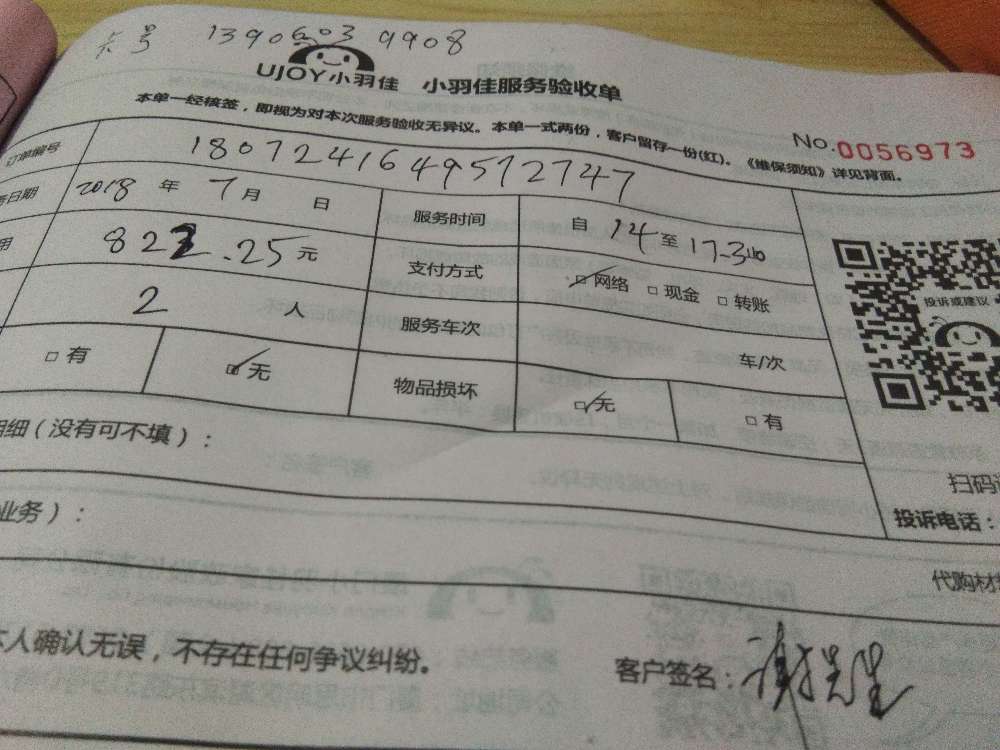 卡号 13906039908
UJOY小羽佳 小羽佳服务验收单
本单一经核签，即视为对本次服务验收无异议。本单一式两份，客户留存一份(红)。《维保须知》详见背面。
No.0056973
订单编号 1807241649572747
务日期 2018 年 7 月 日 服务时间 自 14 至 17:30
用 822.25 元 支付方式 网络 现金 转账
2 人 服务车次 车/次
有 无 物品损坏 无 有
投诉或建议
明细（没有可不填）：
扫码
业务）：
投诉电话：
代购材
本人确认无误，不存在任何争议纠纷。
客户签名：谢先生